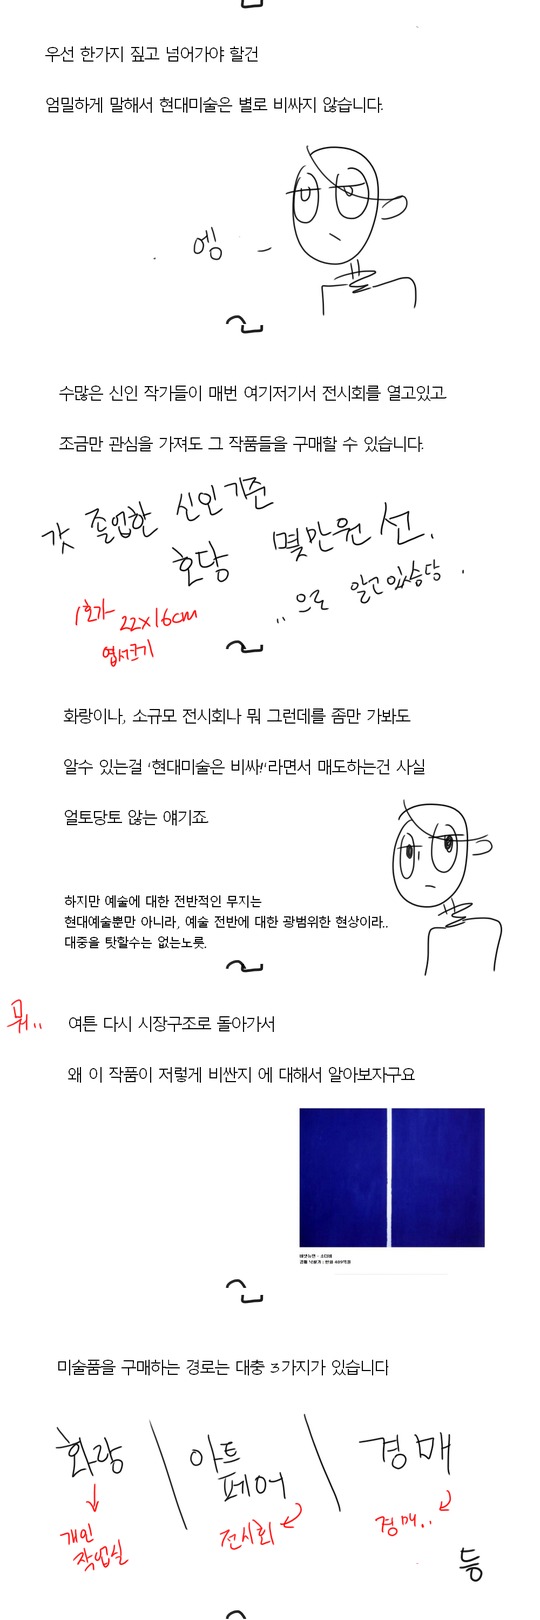 우선 한가지 짚고 넘어가야 할건
엄밀하게 말해서 현대미술은 별로 비싸지 않습니다.
엥
수많은 신인 작가들이 매번 여기저기서 전시회를 열고있고
조금만 관심을 가져도 그 작품들을 구매할 수 있습니다.
갓 졸업한 신인기준
호당 몇만원 선.
..으로 알고있슴당.
1호가 22x16cm
엽서크기
화랑이나, 소규모 전시회나 뭐 그런데를 좀만 가봐도
알수 있는걸 '현대미술은 비싸!'라면서 매도하는건 사실
얼토당토 않는 얘기죠
하지만 예술에 대한 전반적인 무지는
현대예술뿐만 아니라, 예술 전반에 대한 광범위한 현상이라..
대중을 탓할수는 없는노릇.
뭐..
여튼 다시 시장구조로 돌아가서
왜 이 작품이 저렇게 비싼지 에 대해서 알아보자구요
미술품을 구매하는 경로는 대충 3가지가 있습니다
화랑 / 아트페어 / 경매
개인
작업실
전시회
경매..
등